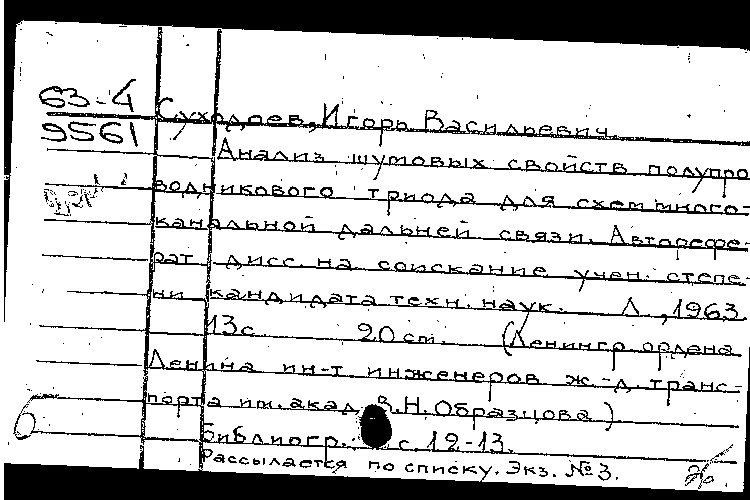 63-4
9561
Суходоев, Игорь Васильевич.
Анализ шумовых свойств полупро
водникового триода для схем много-
канальной дальней связи. Авторефе-
рат дисс. на соискание учен. степе-
ни кандидата техн. наук. Л., 1963
13с 20 cm. (Ленингр. ордена
Ленина ин-т инженеров ж.-д. транс-
порта им. акад. В.Н. Образцова)
Библиогр. с. 12-13.
Рассылается по списку. Экз. №3.
б